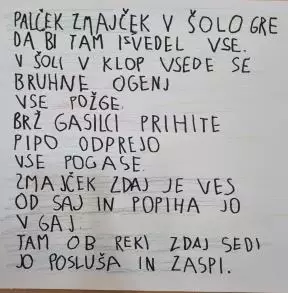 PALČEK ZMAJČEK V ŠOLO GRE
DA BI TAM IZVEDEL VSE.
V ŠOLI V KLOP VSEDE SE
BRUHNE OGENJ
VSE POŽGE.
BRŽ GASILCI PRIHITE
PIPO ODPREJO
VSE POGASE.
ZMAJČEK ZDAJ JE VES
OD SAJ IN POPIHA JO
V GAJ.
TAM OB REKI ZDAJ SEDI
JO POSLUŠA IN ZASPI.